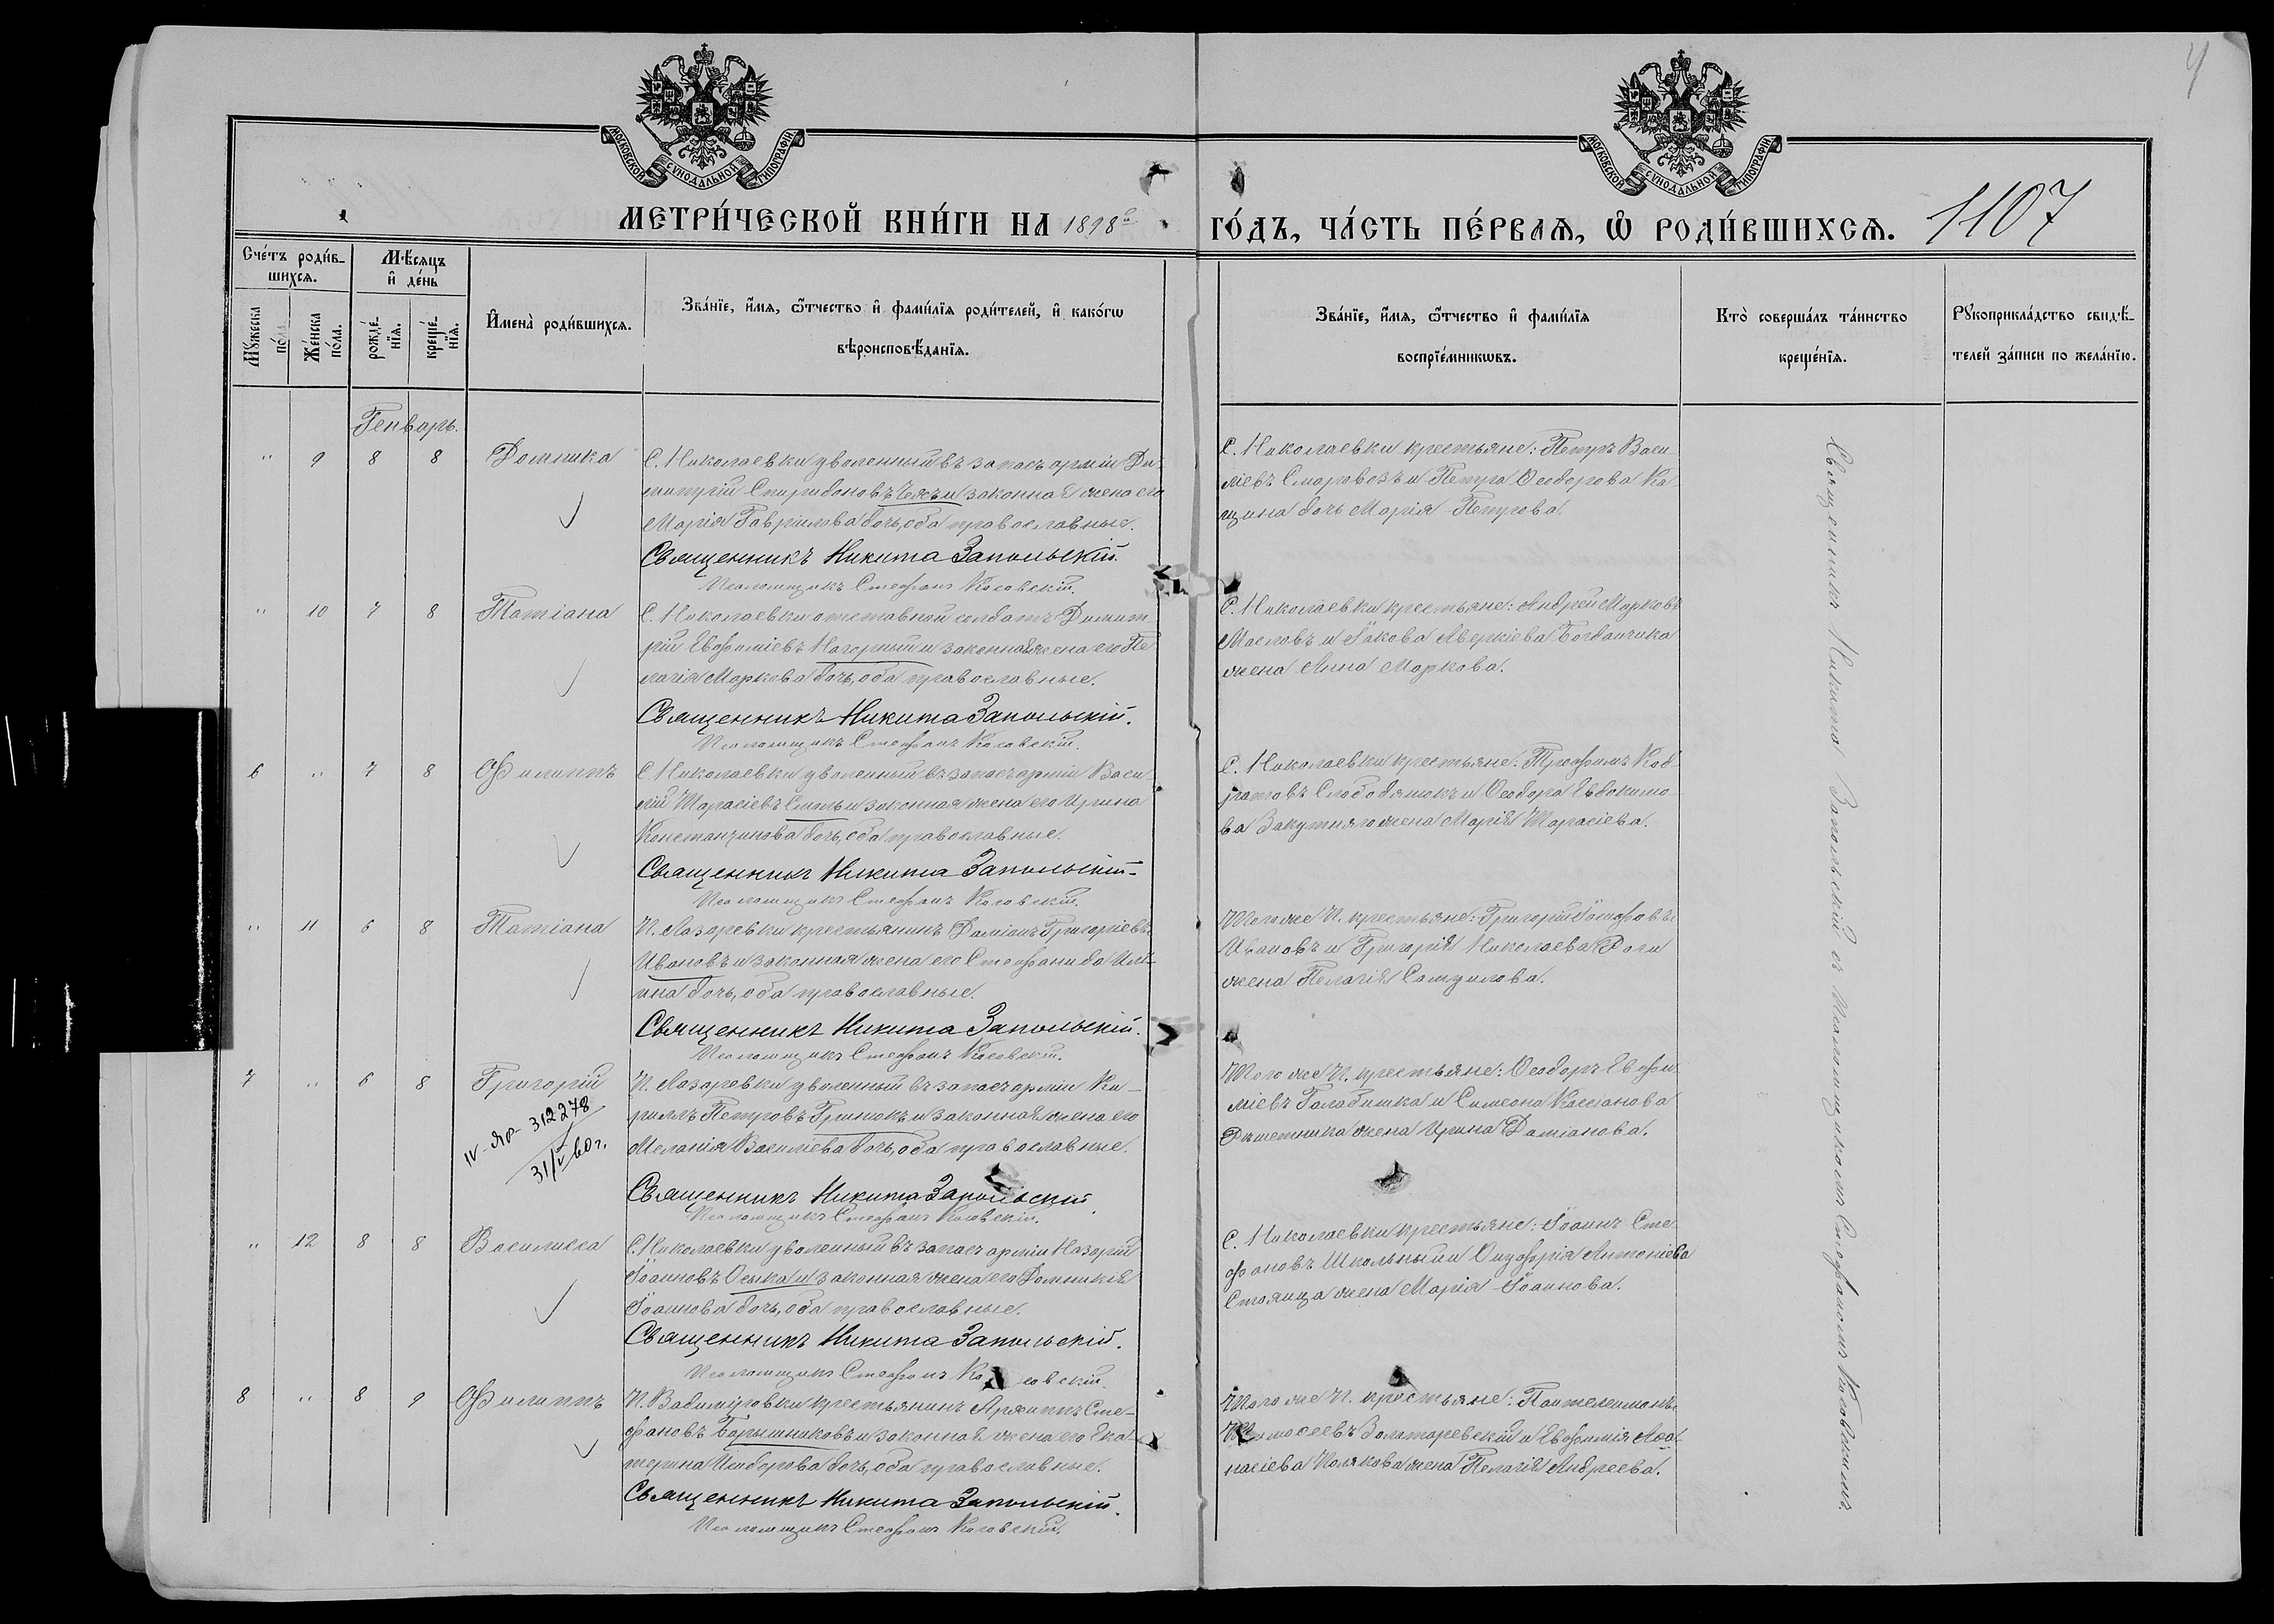 4
МОСКОВСКОЙ СѴНОДАЛЬНОЙ ТИПОГРАФІИ
МОСКОВСКОЙ СѴНОДАЛЬНОЙ ТИПОГРАФІИ
МЕТРИ́ЧЕСКОЙ КНИ́ГИ НА 1898й ГО́ДЪ, ЧА́СТЬ ПЕ́РВАЯ, Ѡ РОДИ́ВШИХСЯ. 1107
Сче́тъ роди́в-
шихся.
Мѣ́сяцъ
и҆ де́нь
Мꙋ́жеска
по́ла.
Же́нска
по́ла.
рожде́-
нїя.
креще́-
нїя.
И҆мена̀ роди́вшихся.
Зва́нїе, и҆́мя, ѻ҆́тчество и҆ фами́лїя роди́телей, и҆ како́гѡ
вѣроисповѣ́данїя.
Зва́нїе, и҆́мя, ѻ҆́тчество и҆ фами́лїя
воспрїе́мникѡвъ.
Кто̀ соверша́лъ та́инство
креще́нїя.
Рꙋкоприкла́дство свидѣ́-
телей за́писи по жела́нїю.
Генварь.
" 9 8 8 Домника
С. Николаевки уволенный въ запасъ арміи Ди-
митрій Спиридоновъ Чехъ и законная жена его
Марія Гавріилова дочь, оба православные.
Священникъ Никита Запольскій.
Псаломщикъ Стефанъ Косовскій.
С. Николаевки крестьяне: Петръ Васи-
ліевъ Смаровозъ и Петра Ѳеодорова Ка-
щина дочь Марія Петрова.
" 10 7 8 Татіана
С. Николаевки отставной солдатъ Димит-
рій Евфиміевъ Нагорный и законная жена его Пе-
лагія Маркова дочь, оба православные.
Священникъ Никита Запольскій.
Псаломщикъ Стефанъ Косовскій.
С. Николаевки крестьяне: Андрей Марковъ
Масловъ и Іакова Аверкіева Богданчика
жена Анна Маркова.
6 " 7 8 Филиппъ
С. Николаевки уволенный въ запасъ арміи Васи-
лій Тарасіевъ Смаль и законная жена его Ирина
Константинова дочь, оба православные.
Священникъ Никита Запольскій.
Псаломщикъ Стефанъ Косовскій.
С. Николаевки крестьяне: Трофимъ Код-
ратовъ Слободянюкъ и Ѳеодора Евдокимо-
ва Закутняго жена Марія Тарасіева.
" 11 6 8 Татіана
П. Лазаревки крестьянинъ Даміанъ Григоріевъ
Ивановъ и законная жена его Стефанида Иль-
ина дочь, оба православные.
Священникъ Никита Запольскій.
Псаломщикъ Стефанъ Косовскій.
Того же П. крестьяне: Григорій Іосифовъ
Ивановъ и Григорія Николаева Роги
жена Пелагія Самуилова.
7 " 6 8 Григорій
IV-ЯР-312278
31/V 60г.
П. Лазаревки уволенный въ запасъ арміи Ки-
риллъ Петровъ Гринюкъ и законная жена его
Меланія Василіева дочь, оба православные.
Священникъ Никита Запольскій
Псаломщикъ Стефанъ Косовскій.
Того же П. крестьяне: Ѳеодоръ Евфи-
міевъ Галабишка и Симеона Кассіанова
Рѣшетника жена Ирина Даміанова.
" 12 8 8 Василисса
С. Николаевки уволенный въ запасъ арміи Назарій
Іоанновъ Осыка и законная жена его Домникія
Іоаннова дочь, оба православные.
Священникъ Никита Запольскій.
Псаломщикъ Стефанъ Косовскій.
С. Николаевки крестьяне: Іоаннъ Сте-
фановъ Школьный и Онуфрія Антоніева
Стоянца жена Марія Іоаннова.
8 " 8 9 Филиппъ
П. Вадимировки крестьянинъ Архиппъ Сте-
фановъ Барышниковъ и законная жена его Ека-
терина Исидорова дочь, оба православные.
Священникъ Никита Запольскій.
Псаломщикъ Стефанъ Косовскій.
Того же П. крестьяне: Пантелеимонъ
Тимоѳеевъ Золтаревскій и Евфимія Аѳа-
насіева Полякова жена Пелагія Андреева.
Священникъ Никита Запольскій съ Псаломщикомъ Стефаномъ Косовскимъ.